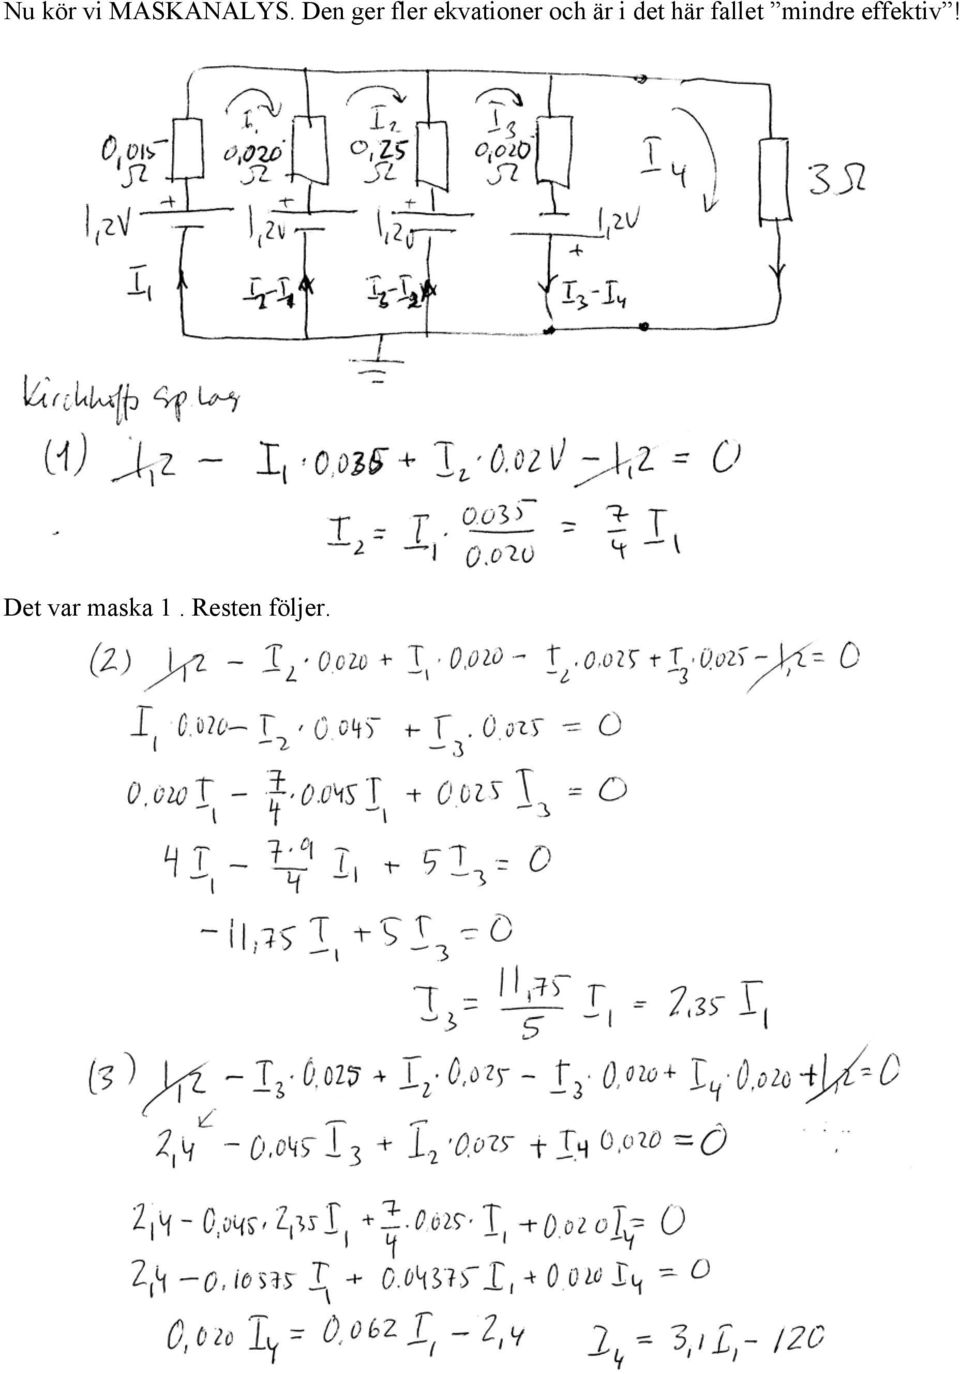 Nu kör vi MASKANALYS. Den ger fler ekvationer och är i det här fallet ”mindre effektiv”!
I₁ I₂ I₃
0,015 Ω 0,020 Ω 0,25 Ω 0,020 Ω I₄ 3Ω
1,2V + 1,2V + 1,2V + 1,2V +
I₁ I₂-I₁ I₃-I₂ I₃-I₄
Kirchhoffs sp.lag
(1) 1,2 - I₁·0,035 + I₂·0.02V - 1,2 = 0
I₂ = I₁· 0.035/0.020 = 7/4 I₁
Det var maska 1 . Resten följer.
(2) 1,2 - I₂·0.020 + I₁·0.020 - I₂·0.025 + I₃·0.025 - 1,2 = 0
I₁ 0.020 - I₂·0.045 + I₃·0.025 = 0
0.020 I₁ - 7/4·0.045 I₁ + 0.025 I₃ = 0
4 I₁ - 7·9/4 I₁ + 5 I₃ = 0
-11,75 I₁ + 5 I₃ = 0
I₃ = 11,75/5 I₁ = 2,35 I₁
(3) 1,2 - I₃·0,025 + I₂·0,025 - I₃·0,020 + I₄·0,020 + 1,2 = 0
2,4 - 0.045 I₃ + I₂·0.025 + I₄ 0,020 = 0
2,4 - 0,045·2,35 I₁ + 7/4·0.025·I₁ + 0.020 I₄ = 0
2,4 - 0.10575 I₁ + 0.04375 I₁ + 0.020 I₄ = 0
0,020 I₄ = 0.062 I₁ - 2,4 I₄ = 3,1 I₁ - 120